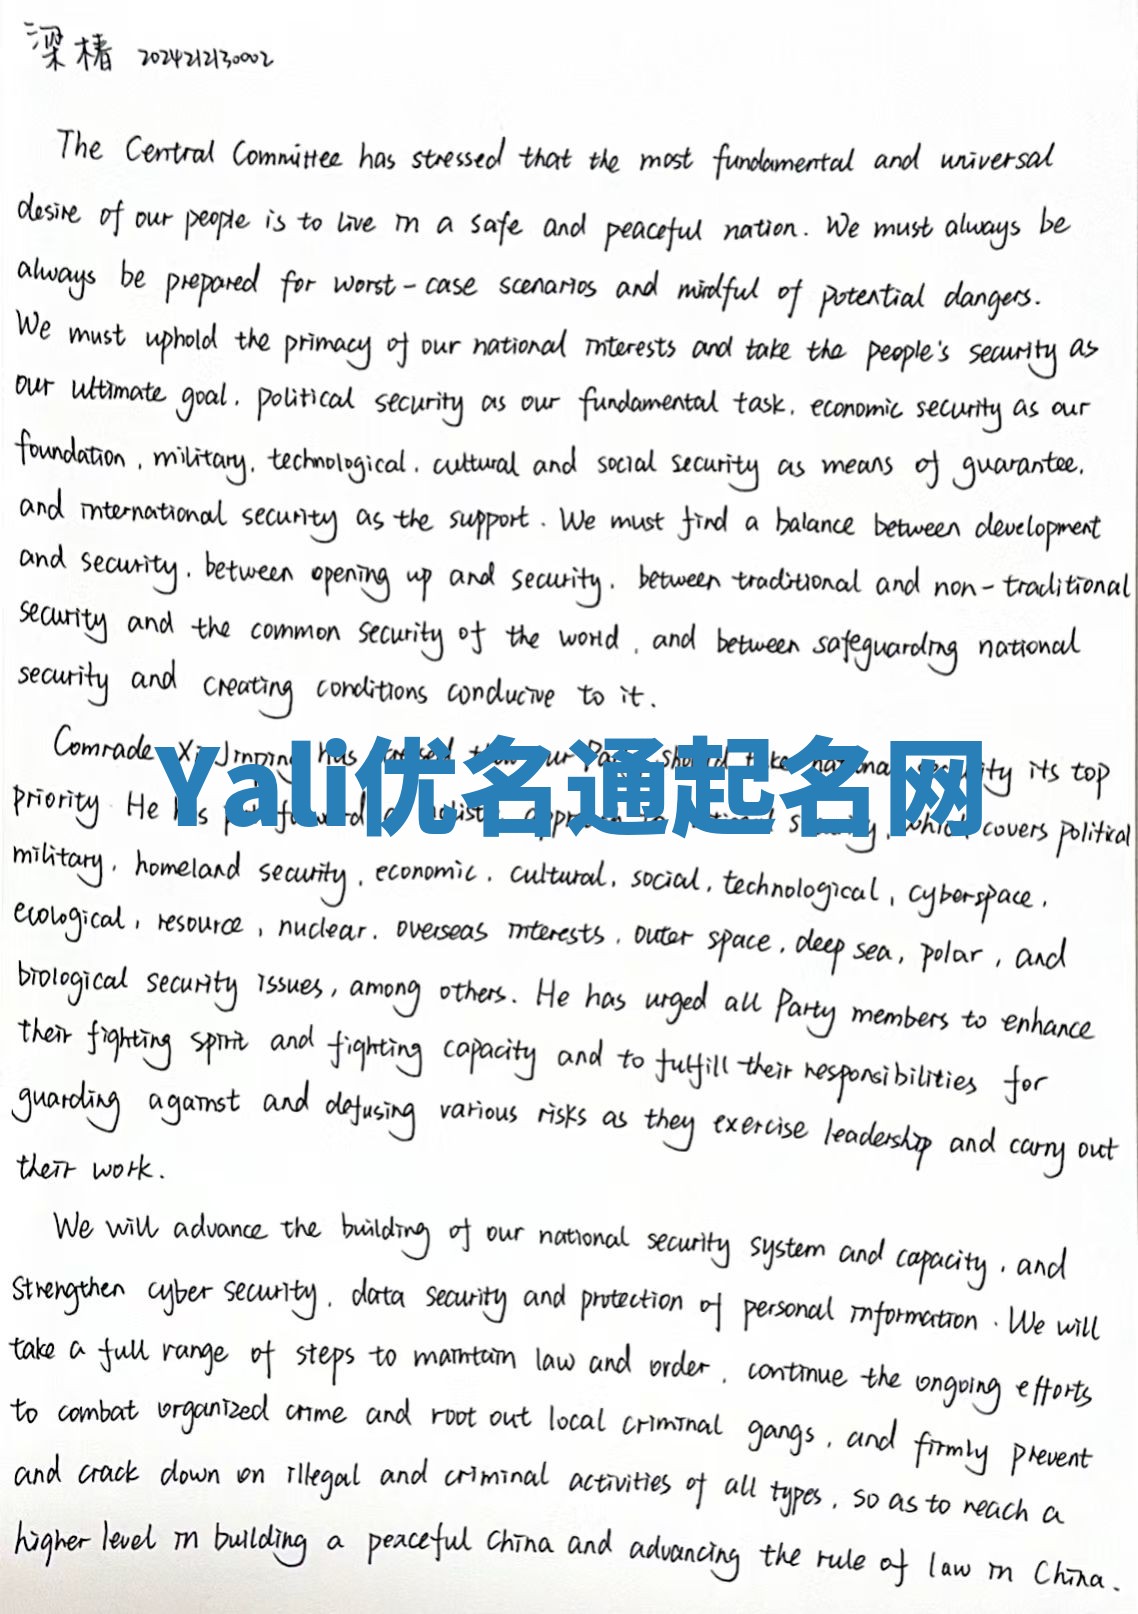 梁椿 2024212130002
The Central Committee has stressed that the most fundamental and universal
desire of our people is to live in a safe and peaceful nation. We must always be
always be prepared for worst-case scenarios and mindful of potential dangers.
We must uphold the primacy of our national interests and take the people's security as
our ultimate goal, political security as our fundamental task, economic security as our
foundation, military, technological, cultural and social security as means of guarantee,
and international security as the support. We must find a balance between development
and security, between opening up and security, between traditional and non-traditional
security and the common security of the world, and between safeguarding national
security and creating conditions conducive to it.
Comrade Xi Jinping has that our should take national its top
Yali优名通起名网
priority. He has which covers political
military, homeland security, economic, cultural, social, technological, cyberspace,
ecological, resource, nuclear, overseas interests, outer space, deep sea, polar, and
biological security issues, among others. He has urged all Party members to enhance
their fighting spirit and fighting capacity and to fulfill their responsibilities for
guarding against and defusing various risks as they exercise leadership and carry out
their work.
We will advance the building of our national security system and capacity, and
strengthen cyber security, data security and protection of personal information. We will
take a full range of steps to maintain law and order, continue the ongoing efforts
to combat organized crime and root out local criminal gangs, and firmly prevent
and crack down on illegal and criminal activities of all types, so as to reach a
higher level in building a peaceful China and advancing the rule of law in China.